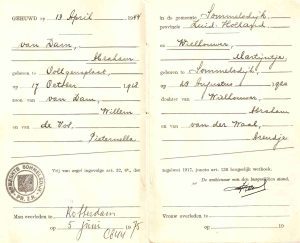 GEHUWD op 13 April 1944
van Dam,
Abraham
geboren te Ooltgensplaat,
op 17 October 1918
zoon van van Dam,
Willem
en van
de Vos,
Pieternella
Vrij van zegel ingevolge art. 32, 4º, der
Man overleden te Rotterdam
op 5 Juni 75
in de gemeente Sommelsdijk,
provincie Zuid-Holland
en Wielhouwer,
Martijntje
geboren te Sommelsdijk,
op 1920
dochter van Wielhouwer,
Abraham
en van van der Waal,
Arendje
zegelwet 1917, juncto art. 136 burgerlijk wetboek.
De ambtenaar van den burgerlijken stand,
Vrouw overleden te
op 19